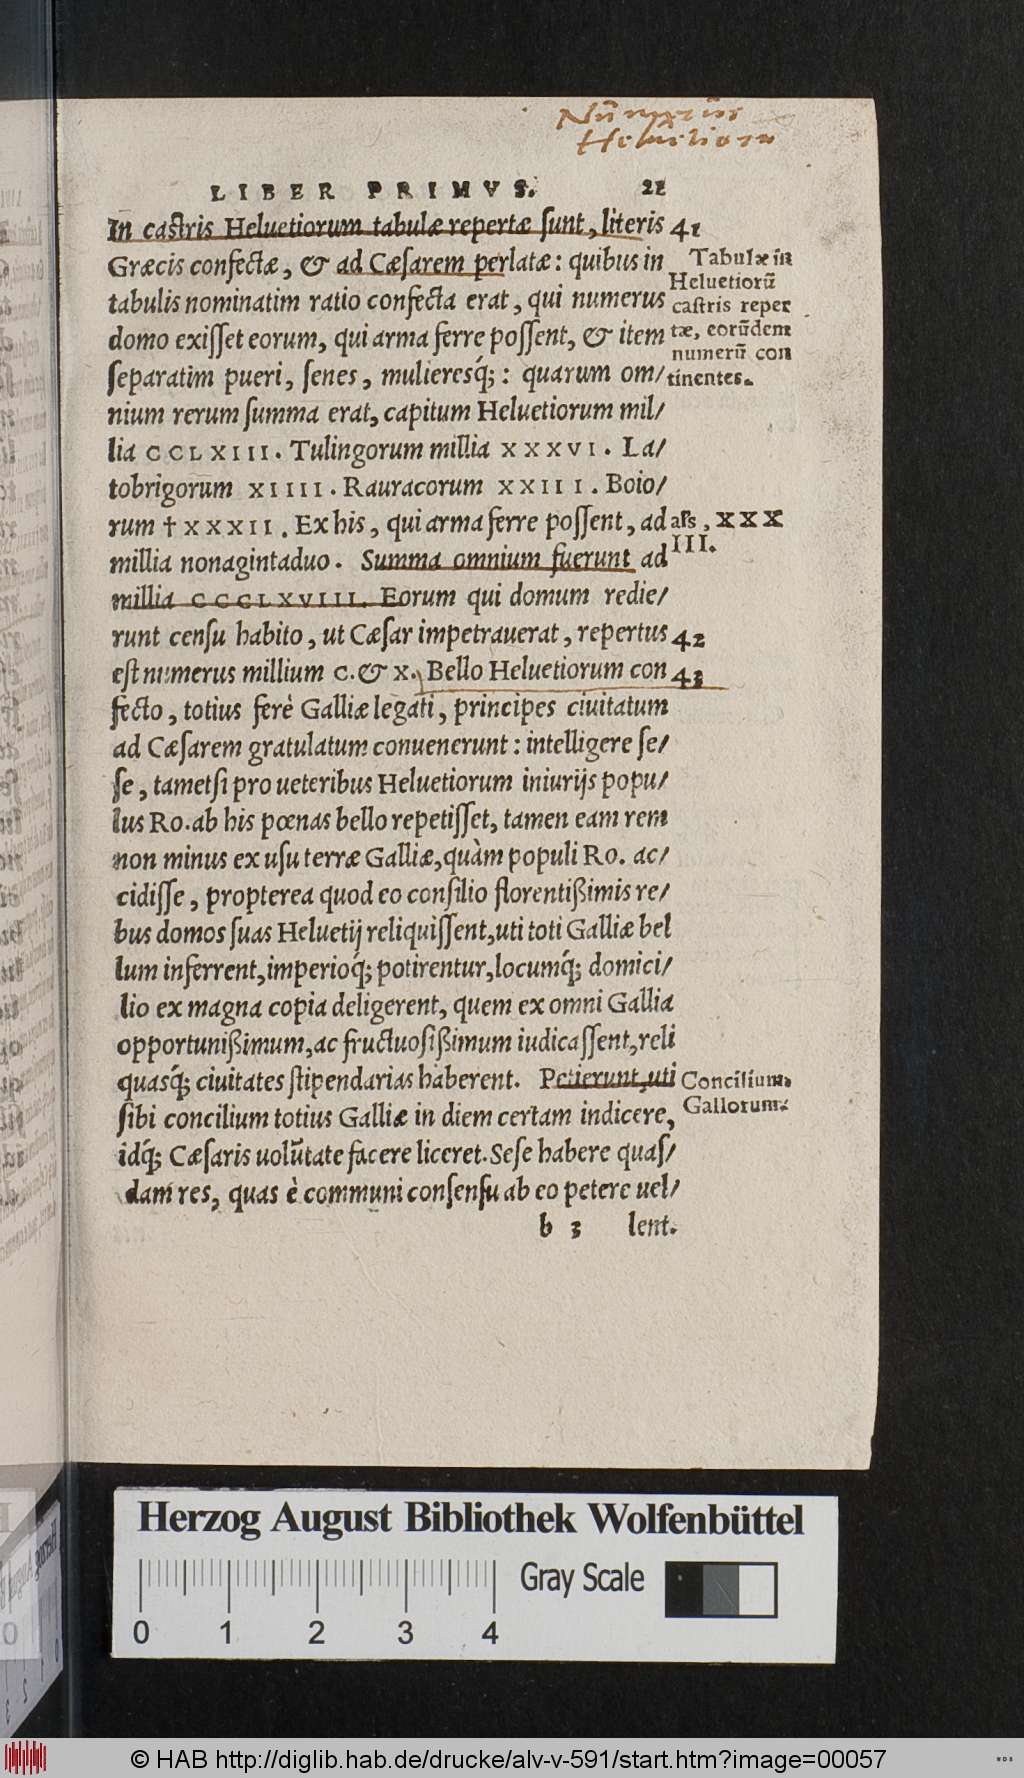 Heluetiorum
LIBER PRIMVS. 21
In castris Heluetiorum tabulæ repertæ sunt, literis
Græcis confectæ, & ad Cæsarem perlatæ: quibus in
tabulis nominatim ratio confecta erat, qui numerus
domo exisset eorum, qui arma ferre possent, & item
separatim pueri, senes, mulieresq́;: quarum om/
nium rerum summa erat, capitum Heluetiorum mil/
lia CCLXIII. Tulingorum millia XXXVI. La/
tobrigorum XIIII. Rauracorum XXIII. Boio/
rum † XXXII. Ex his, qui arma ferre possent, ad
millia nonagintaduo. Summa omnium fuerunt ad
millia CCCLXVIII. Eorum qui domum redie/
runt censu habito, ut Cæsar impetrauerat, repertus
est numerus millium C. & X. Bello Heluetiorum con
fecto, totius ferè Galliæ legati, principes ciuitatum
ad Cæsarem gratulatum conuenerunt: intelligere se/
se, tametsi pro ueteribus Heluetiorum iniurijs popu/
lus Ro. ab his pœnas bello repetisset, tamen eam rem
non minus ex usu terræ Galliæ, quàm populi Ro. ac/
cidisse, propterea quod eo consilio florentißimis re/
bus domos suas Heluetij reliquissent, uti toti Galliæ bel
lum inferrent, imperioq́; potirentur, locumq́; domici/
lio ex magna copia deligerent, quem ex omni Gallia
opportunißimum, ac fructuosißimum iudicassent, reli
quasq́; ciuitates stipendarias haberent. Petierunt, uti
sibi concilium totius Galliæ in diem certam indicere,
idq́; Cæsaris uolūtate facere liceret. Sese habere quas/
dam res, quas è communi consensu ab eo petere uel/
b 3 lent.
41
Tabulæ in
Heluetiorū
castris reper
tæ, eorūdem
numerū con
tinentes.
als, XXX
III.
42
43
Concilium
Gallorum.
Herzog August Bibliothek Wolfenbüttel
Gray Scale
0 1 2 3 4
© HAB http://diglib.hab.de/drucke/alv-v-591/start.htm?image=00057